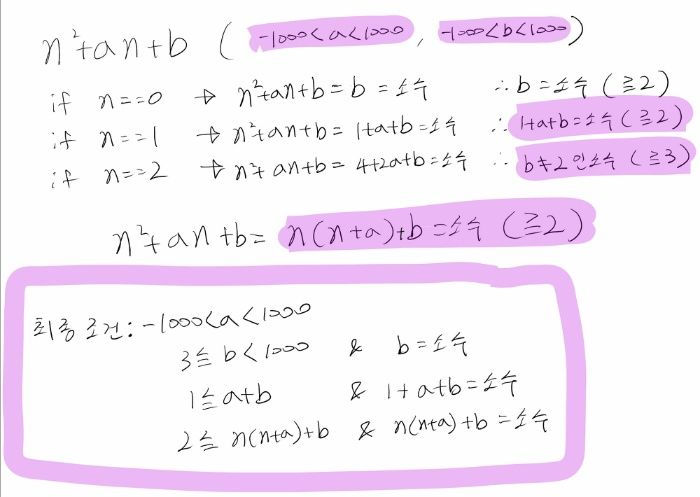 n²+an+b ( -1000<a<1000, -1000<b<1000)
if n==0 → n²+an+b = b = 소수 ∴ b = 소수 (≧2)
if n==1 → n²+an+b = 1+a+b = 소수 ∴ 1+a+b = 소수 (≧2)
if n==2 → n²+an+b = 4+2a+b = 소수 ∴ b≠2 인 소수 (≧3)
n²+an+b = n(n+a)+b = 소수 (≧2)
최종 조건: -1000<a<1000
3≦b<1000 & b=소수
1≦a+b & 1+a+b=소수
2≦n(n+a)+b & n(n+a)+b=소수